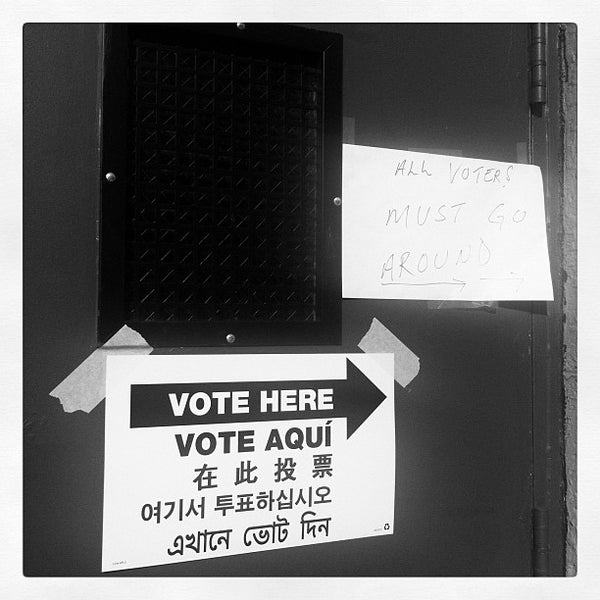 ALL VOTERS
MUST GO
AROUND
VOTE HERE
VOTE AQUÍ
在此投票
여기서 투표하십시오
এখানে ভোট দিন